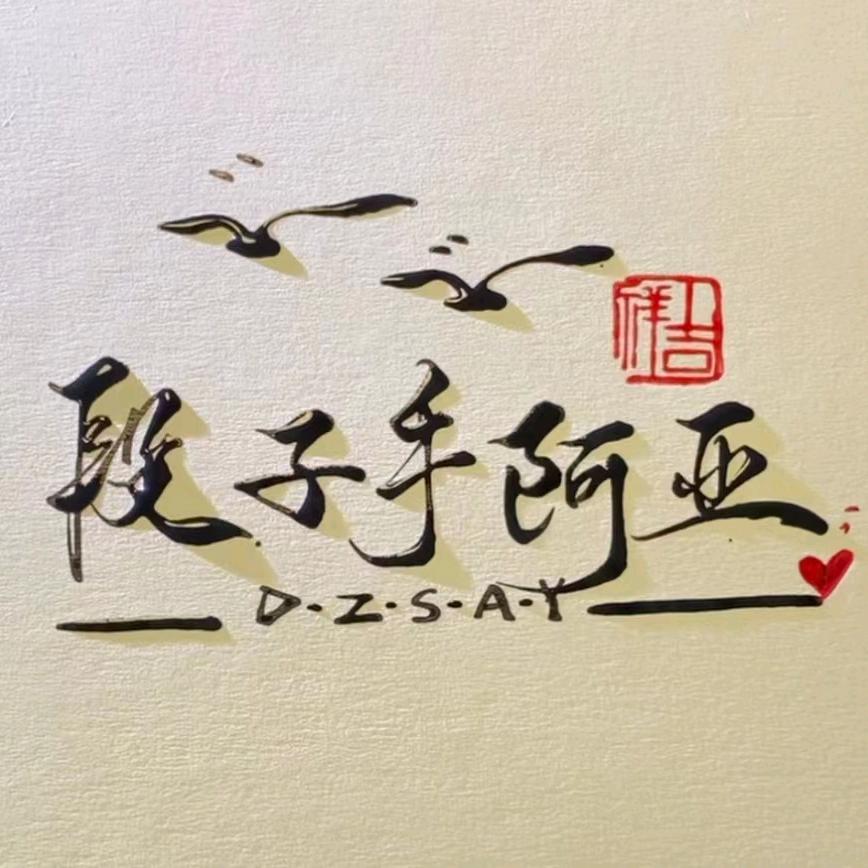 吉祥
段子手阿亚
D·Z·S·A·Y